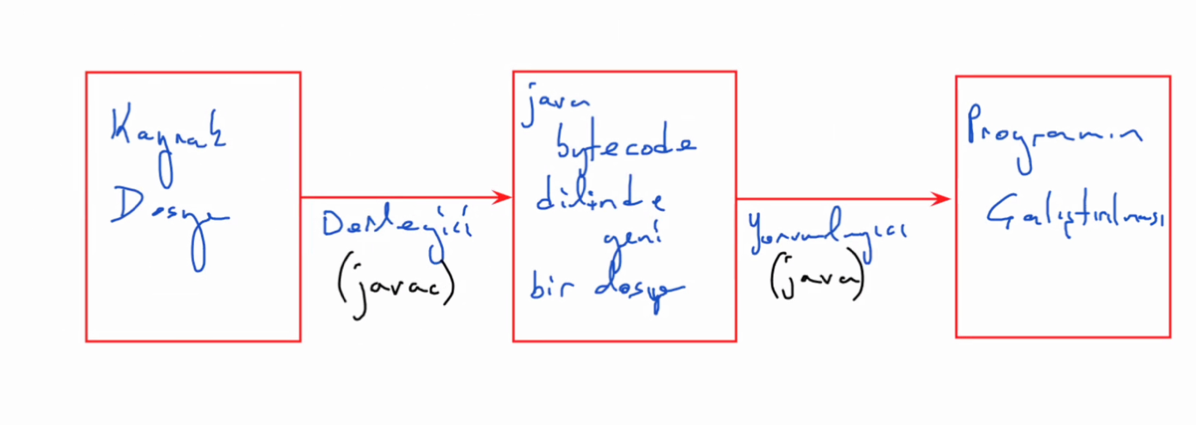 Kaynak
Dosya
Derleyici
(javac)
java
bytecode
dilinde
yeni
bir dosya
Yorumlayıcı
(java)
Programın
Çalıştırılması